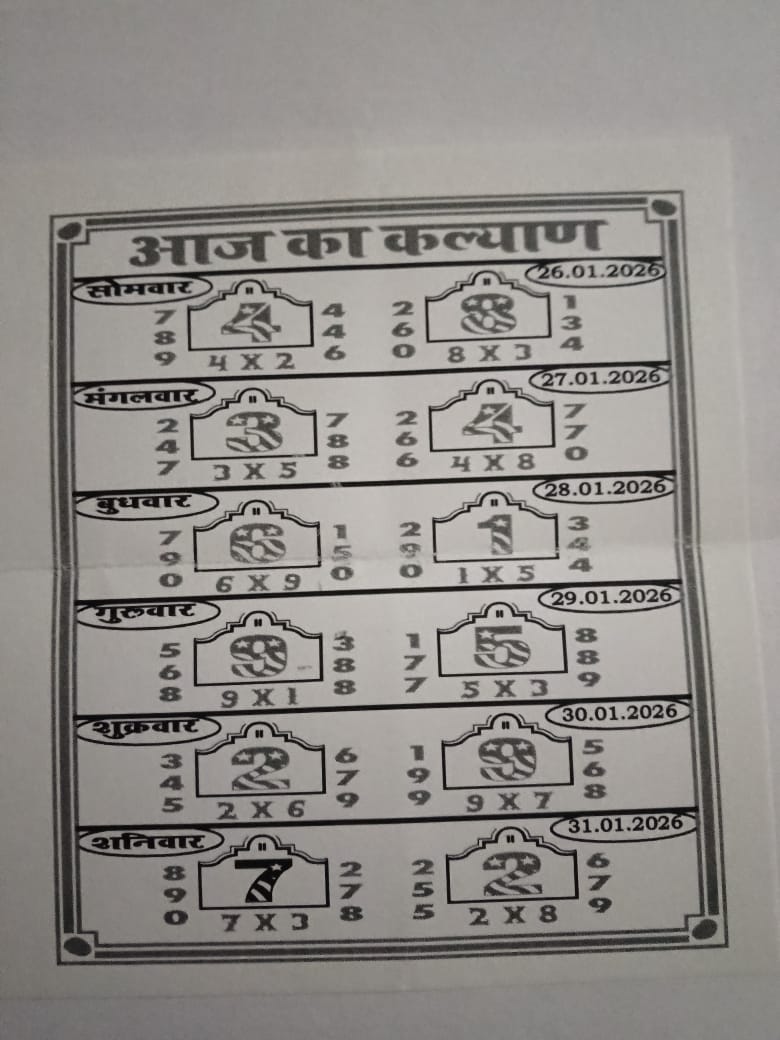 आज का कल्याण
सोमवार 26.01.2026
7 4 4 2 8 1
8 4 6 3
9 4 X 2 6 0 8 X 3 4
मंगलवार 27.01.2026
2 3 7 2 4 7
4 8 6 7
7 3 X 5 8 6 4 X 8 0
बुधवार 28.01.2026
7 6 1 2 1 3
9 5 9 4
0 6 X 9 0 0 1 X 5 4
गुरुवार 29.01.2026
5 9 3 1 5 8
6 8 7 8
8 9 X 1 8 7 5 X 3 9
शुक्रवार 30.01.2026
3 2 6 1 9 5
4 7 9 6
5 2 X 6 9 9 9 X 7 8
शनिवार 31.01.2026
8 7 2 2 2 6
9 7 5 7
0 7 X 3 8 5 2 X 8 9